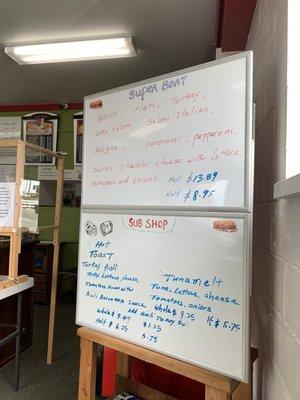 SUPER BOAT
Bacon, Ham, Turkey,
Cotto salami, Salami Italian,
Bologna, pastrami, pepperoni,
Swiss, chedder cheese with Lettuce,
tomatoes and onions. Full $13.89
Half $8.95
SUB SHOP
Hot
Toast
Turkey
Lettuce, cheese
Tomatoes, Onion with
Bacon Sauce
Whole $
Half $6.25
Tuna melt
Tuna, Lettuce, cheese
Tomatoes, onions
Whole $ 9.25 H $5.75
Add
$1.25
.75